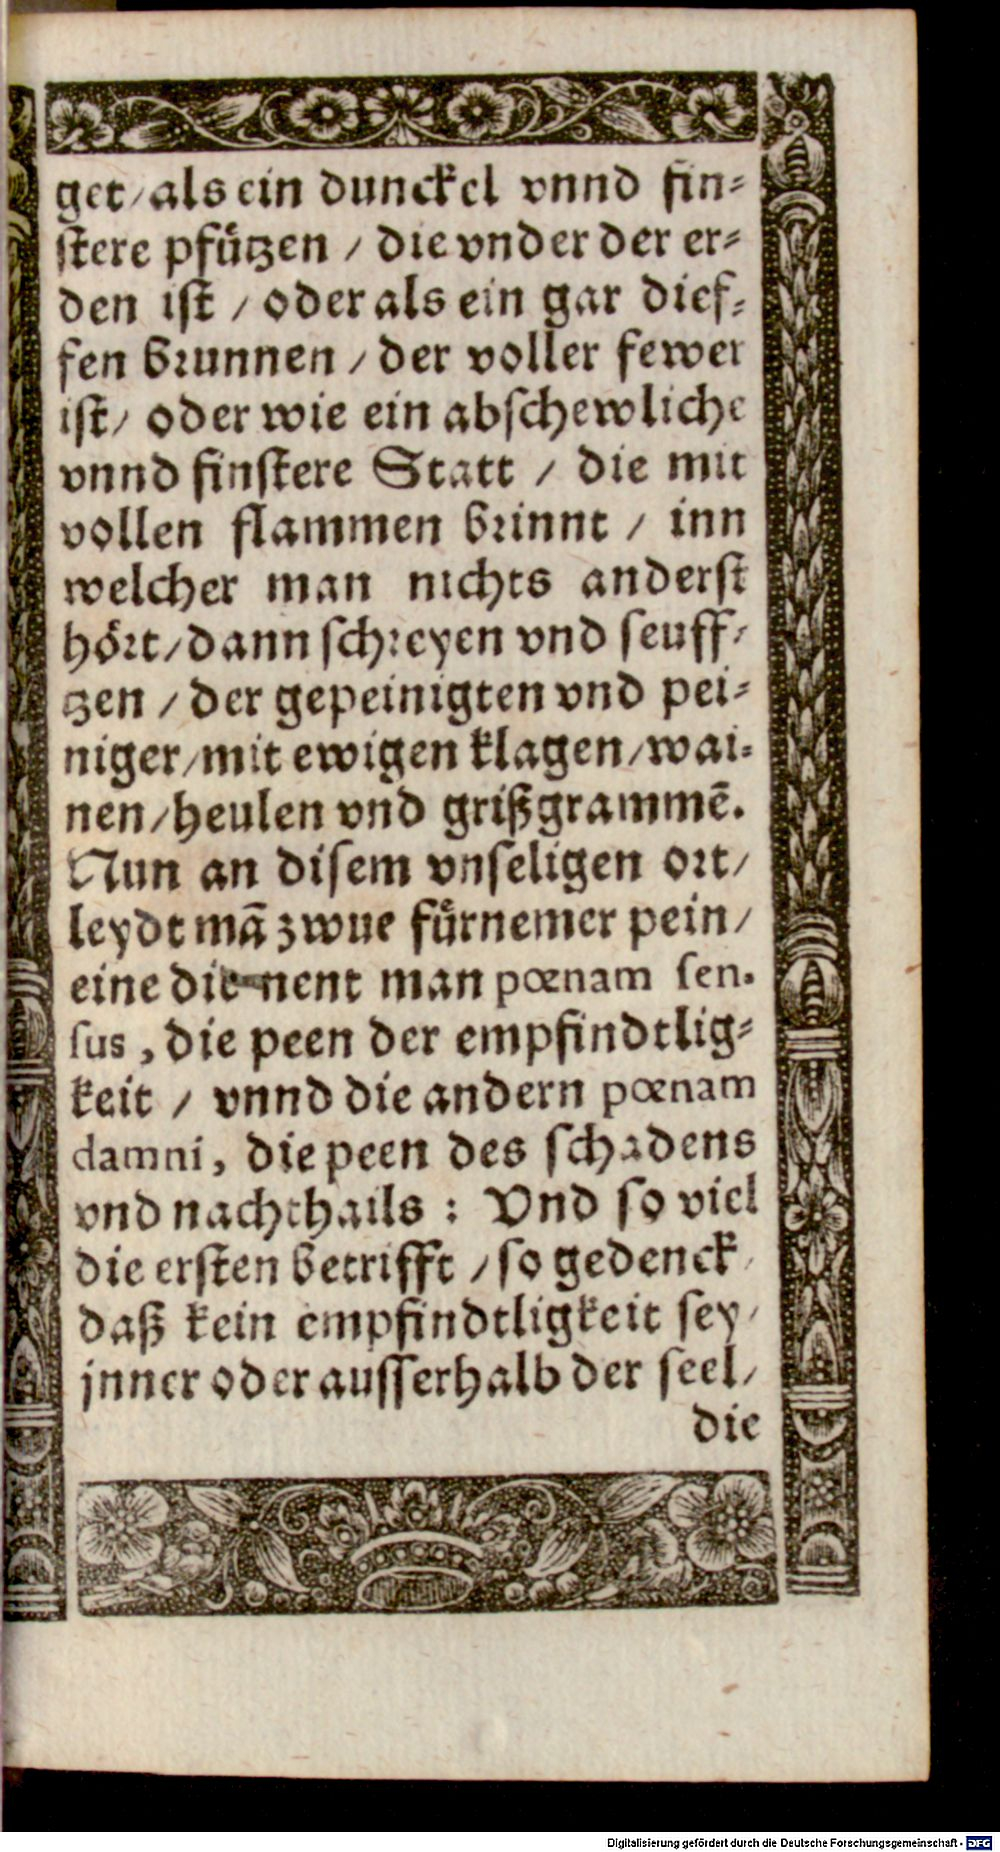 get / als ein dunckel vnnd fin-
stere pfützen / die vnder der er-
den ist / oder als ein gar dief-
fen brunnen / der voller fewer
ist / oder wie ein abschewliche
vnnd finstere Statt / die mit
vollen flammen brinnt / inn
welcher man nichts anderst
hört / dann schreyen vnd seuff-
tzen / der gepeinigten vnd pei-
niger / mit ewigen klagen / wai-
nen / heulen vnd grißgrammẽ.
Nun an disem vnseligen ort /
leydt mã zwue fürnemer pein /
eine die nent man pœnam sen-
sus, die peen der empfindtlig-
keit / vnnd die andern pœnam
damni, die peen des schadens
vnd nachthails : Vnd so viel
die ersten betrifft / so gedenck /
daß kein empfindtligkeit sey /
jnner oder ausserhalb der seel /
die
Digitalisierung gefördert durch die Deutsche Forschungsgemeinschaft - DFG